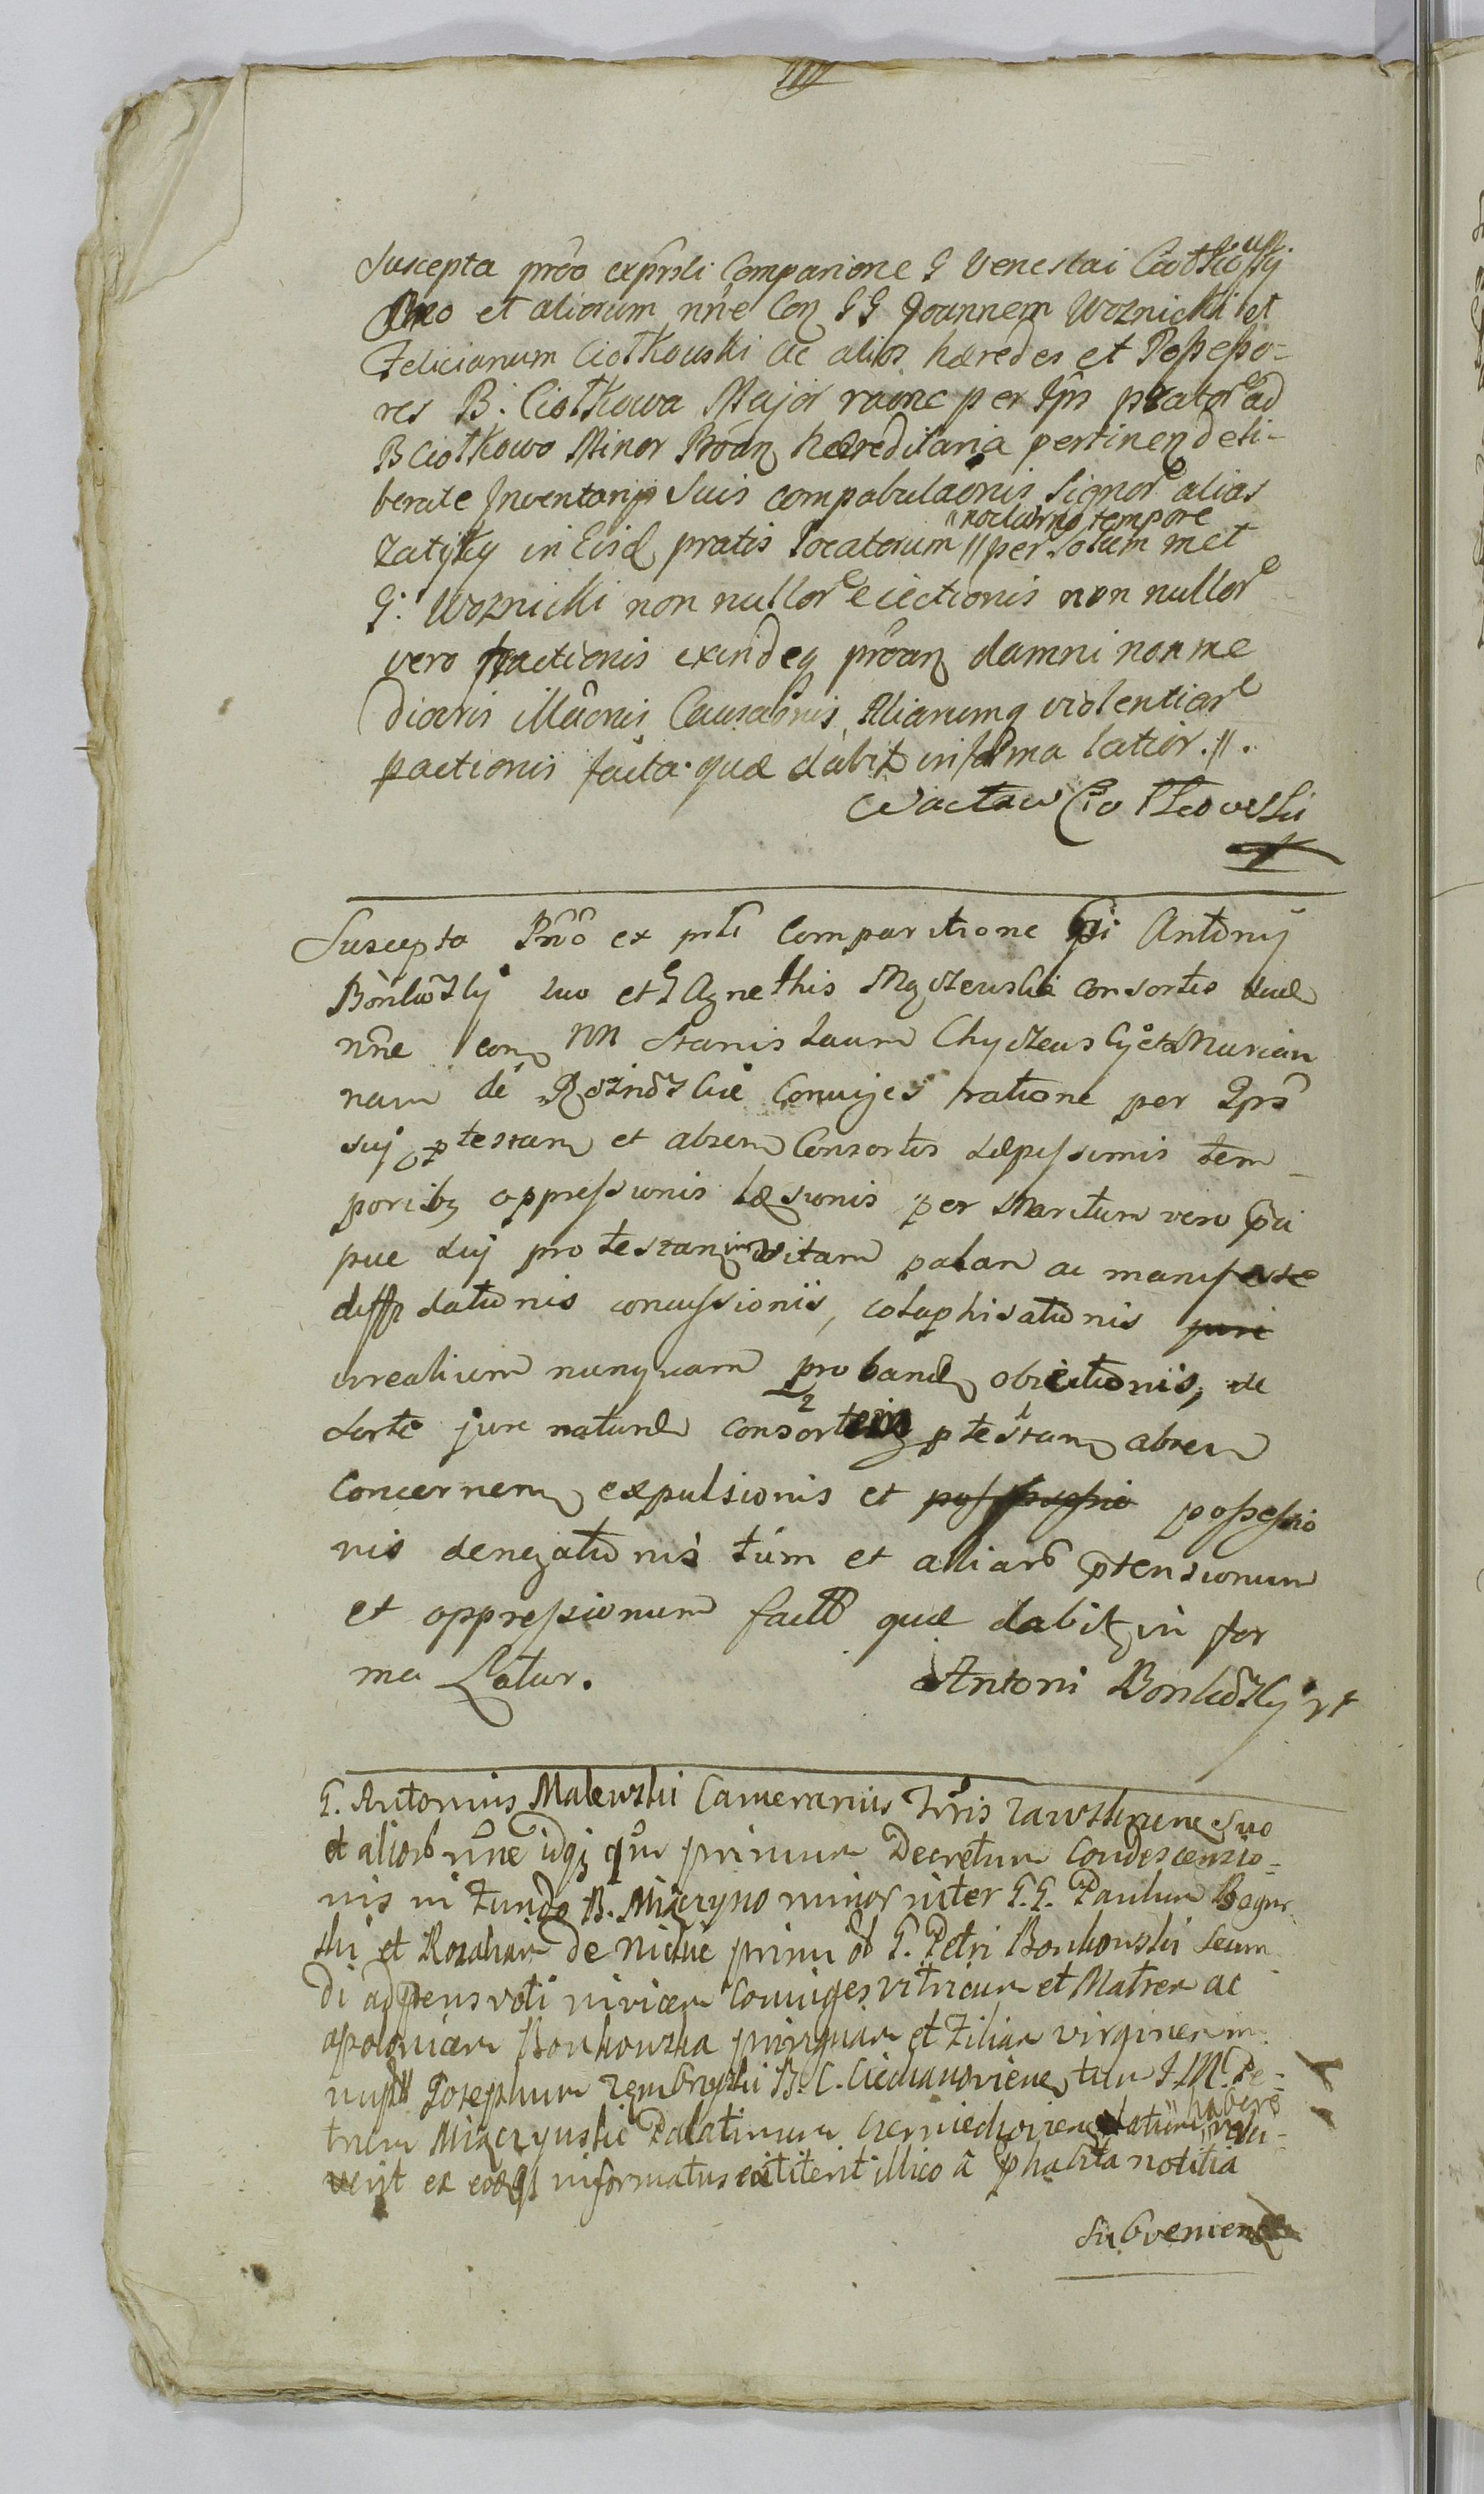 Suscepta prôo exprśli Comparione G Veneslai Ciotkowskj
suo et aliorum nn̂e Con GG Joannem Woznicki et
Felicianum Ciotkowski ac alios hæredes et Possesso-
res B. Ciotkowa Major raone per Ipn prator ad
B Ciotkowo Minor hæreditaria pertinen deli-
berate Inventarijs suis compabulaônis signor alias
Zatyky in Eisd pratis locatorum "nocturno tempore
// per Solum met
G. Woznicki non nullor eiectionis non nullor
vero fractionis exindeq damni non me
diocris illâonis Causaônis Aliarumq violentiar
pactionis facta quæ dabit in forma latior.//.
Wacław Ciotkowski
Suscepta Prôo ex prśli Comparitione Gi Antonij
Bonkowskj suo et G Agnethis consortis suæ
nn̂e con NN Stanislaum et Marian
nam de Conuiges ratione per Ipm̂
sui ptestan et absen Consortis sæpissimis tem-
poribq oppressionis læsionis per Maritum vero p̂ci
pue sui protestan in vitam palam ac manifeste
diffidationis concussionis, colaphisationis juri
irrealium nunquam proband obiectionis, de
sorte jure naturæ consortem ptestan absen
Concernen expulsionis et possessio possessio
nis denegationis tùm et alliar p̂tensionum
et oppressionum factæ quæ dabit in for
ma Latior. Antoni Bonkowskj
G. Antonius Malewski Camerarius Tr̂ris Zawskrzynen suo
et alior nn̂e idq qm primum Decretum Condescensio-
nis in Fundo B. Miączyno minor inter G.G. Paulum
ski et Rozaliam de primi ol G. Petri Bonkowski secun
di adpræns voti invicem Conuiges vitricum et Matrem ac
apoloniam Bonkowska privignam et Filiam virginem in
nuptæ Josephum B. C. Ciechanoviene, tum J. M. Pe-
trum Miączynski Palatinum Czerniechovien latum "habere resci-
verit ex eoq informatus extiterit illico â p̂habita notitia
subvenien